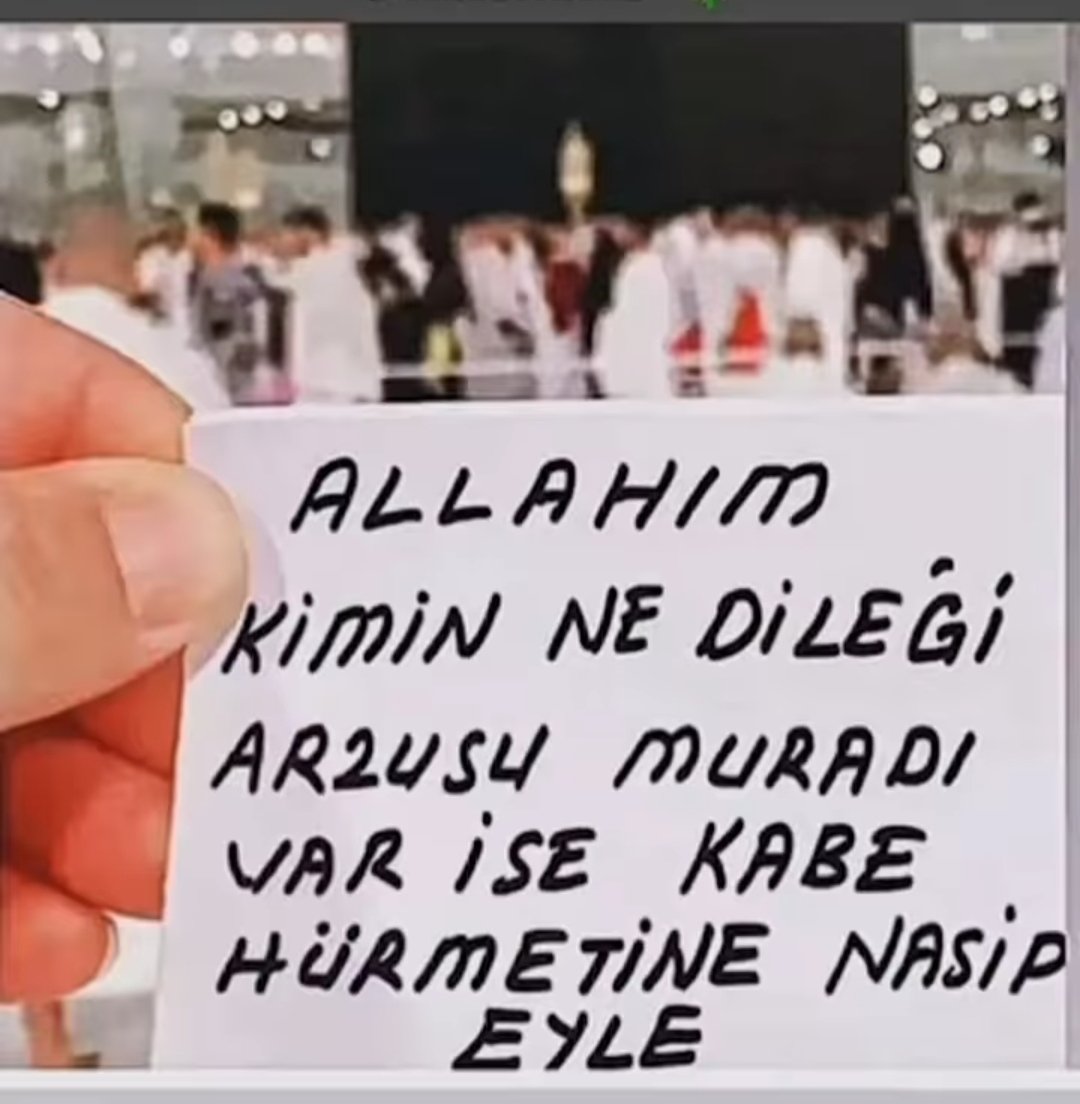 ALLAHIM
KİMİN NE DİLEĞİ
ARZUSU MURADI
VAR İSE KABE
HÜRMETİNE NASİP
EYLE